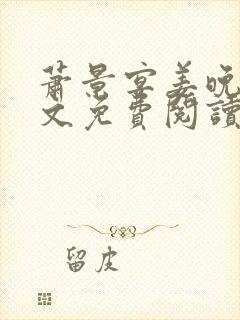 蕭景宴姜晚
文免費閱讀
留皮